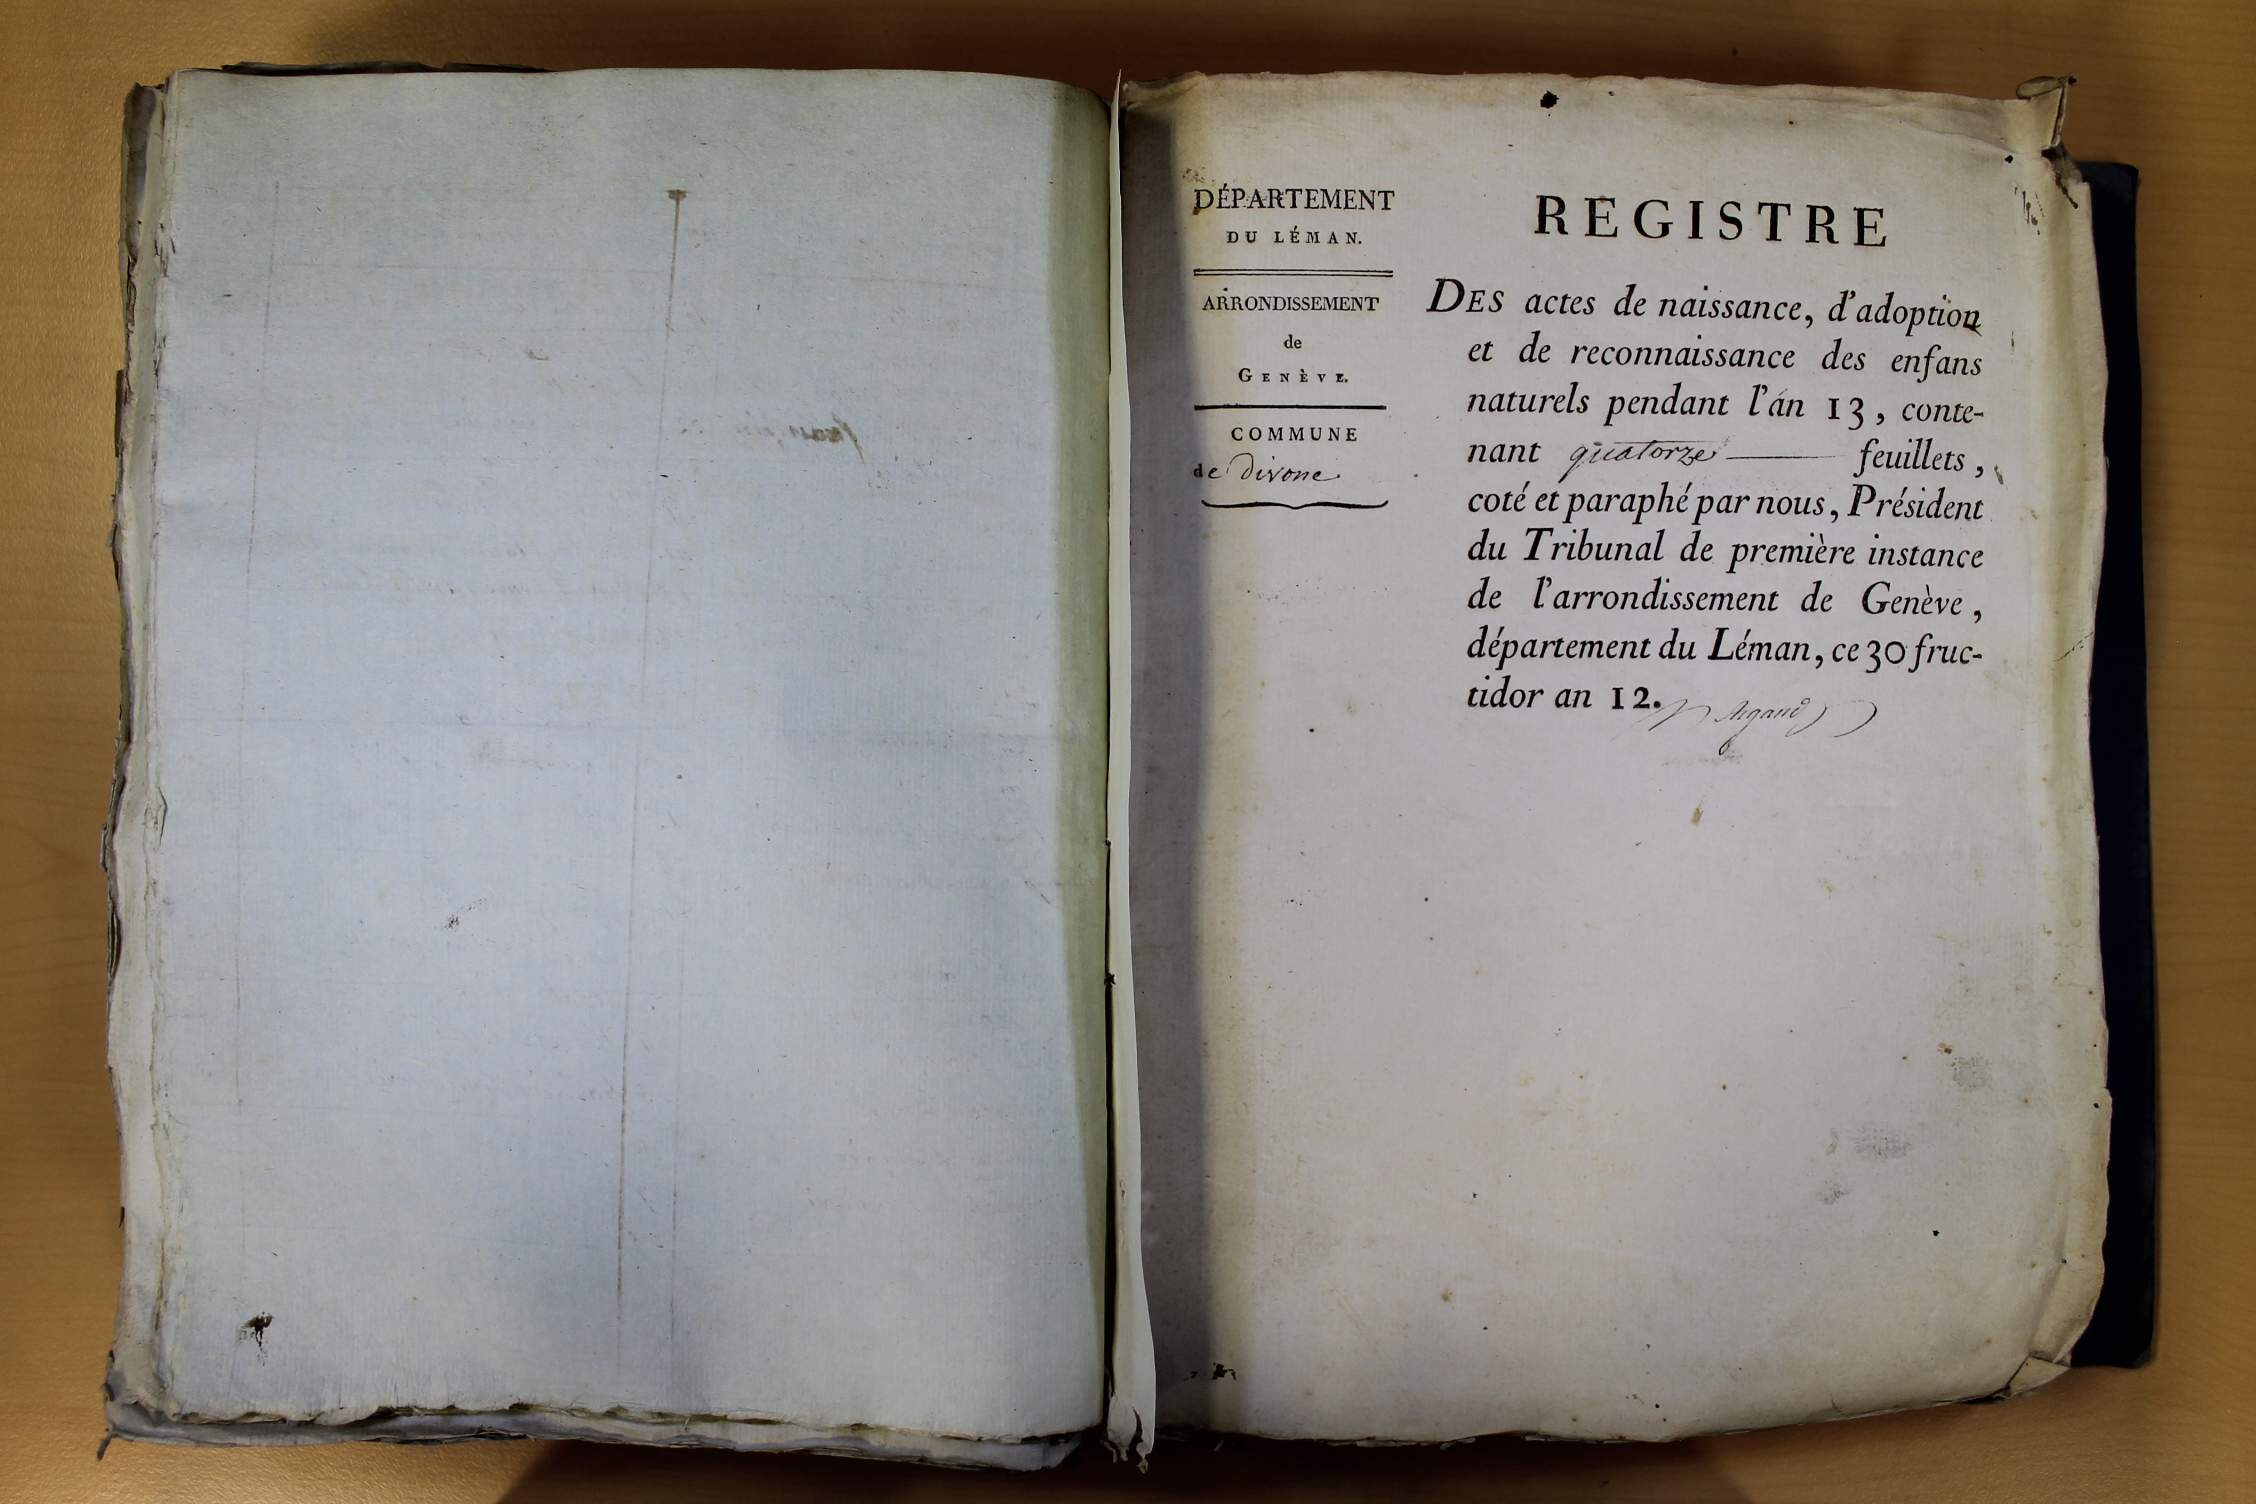 DÉPARTEMENT
DU LÉMAN.
ARRONDISSEMENT
de
GENÈVE.
COMMUNE
de divone
REGISTRE
DES actes de naissance, d'adoption
et de reconnaissance des enfans
naturels pendant l'an 13, conte-
nant quatorze feuillets,
coté et paraphé par nous, Président
du Tribunal de première instance
de l'arrondissement de Genève,
département du Léman, ce 30 fruc-
tidor an 12.
Argand